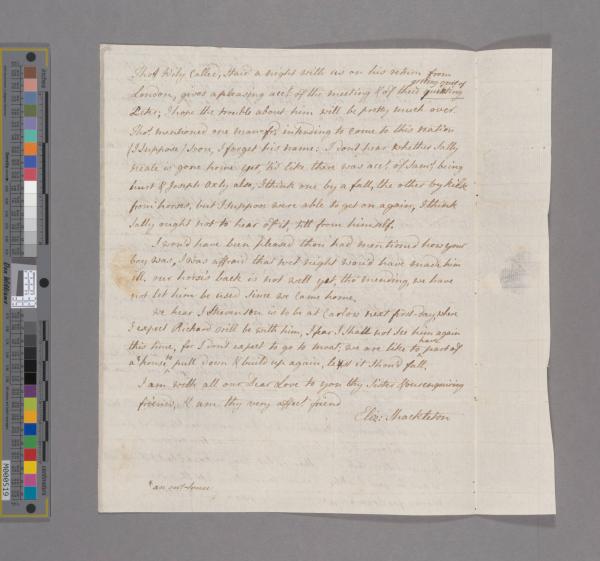 Thos Wily called, staid a night with us on his return from
London, gives a pleasing acct. of the meeting & of their getting quit of quitting
Peter; I hope the trouble about him will be pretty much over.
Thos. mentioned one man fr. intending to come to this nation
(I suppose) soon, I forget his name: I dont hear whether Sally
Neale is gone home yet, tis like there was acct. of Saml. being
hurt & Joseph also, I think one by a fall, the other by kick
from horses, but I suppose were able to get on again, I think
Sally ought not to hear of it, till from himself.
I woud have been pleased thou had mentioned how your
boy was, I was affraid that wet night woud have made him
ill. our horse's back is not well yet, tho mending, we have
not let him be used since we came home.
we hear J Stevenson is to be at Carlow next first-day, where
I expect Richard will be with him, I fear I shall not see him again
this time, for I dont expect to go to moat; we are like to have part of
a *house pull down & build up again, lest it shoud fall.
I am with all our dear Love to you thy Sister & enquiring
friends, & am thy very affect. friend
Eliz: Shackleton
*an out-house
M000519